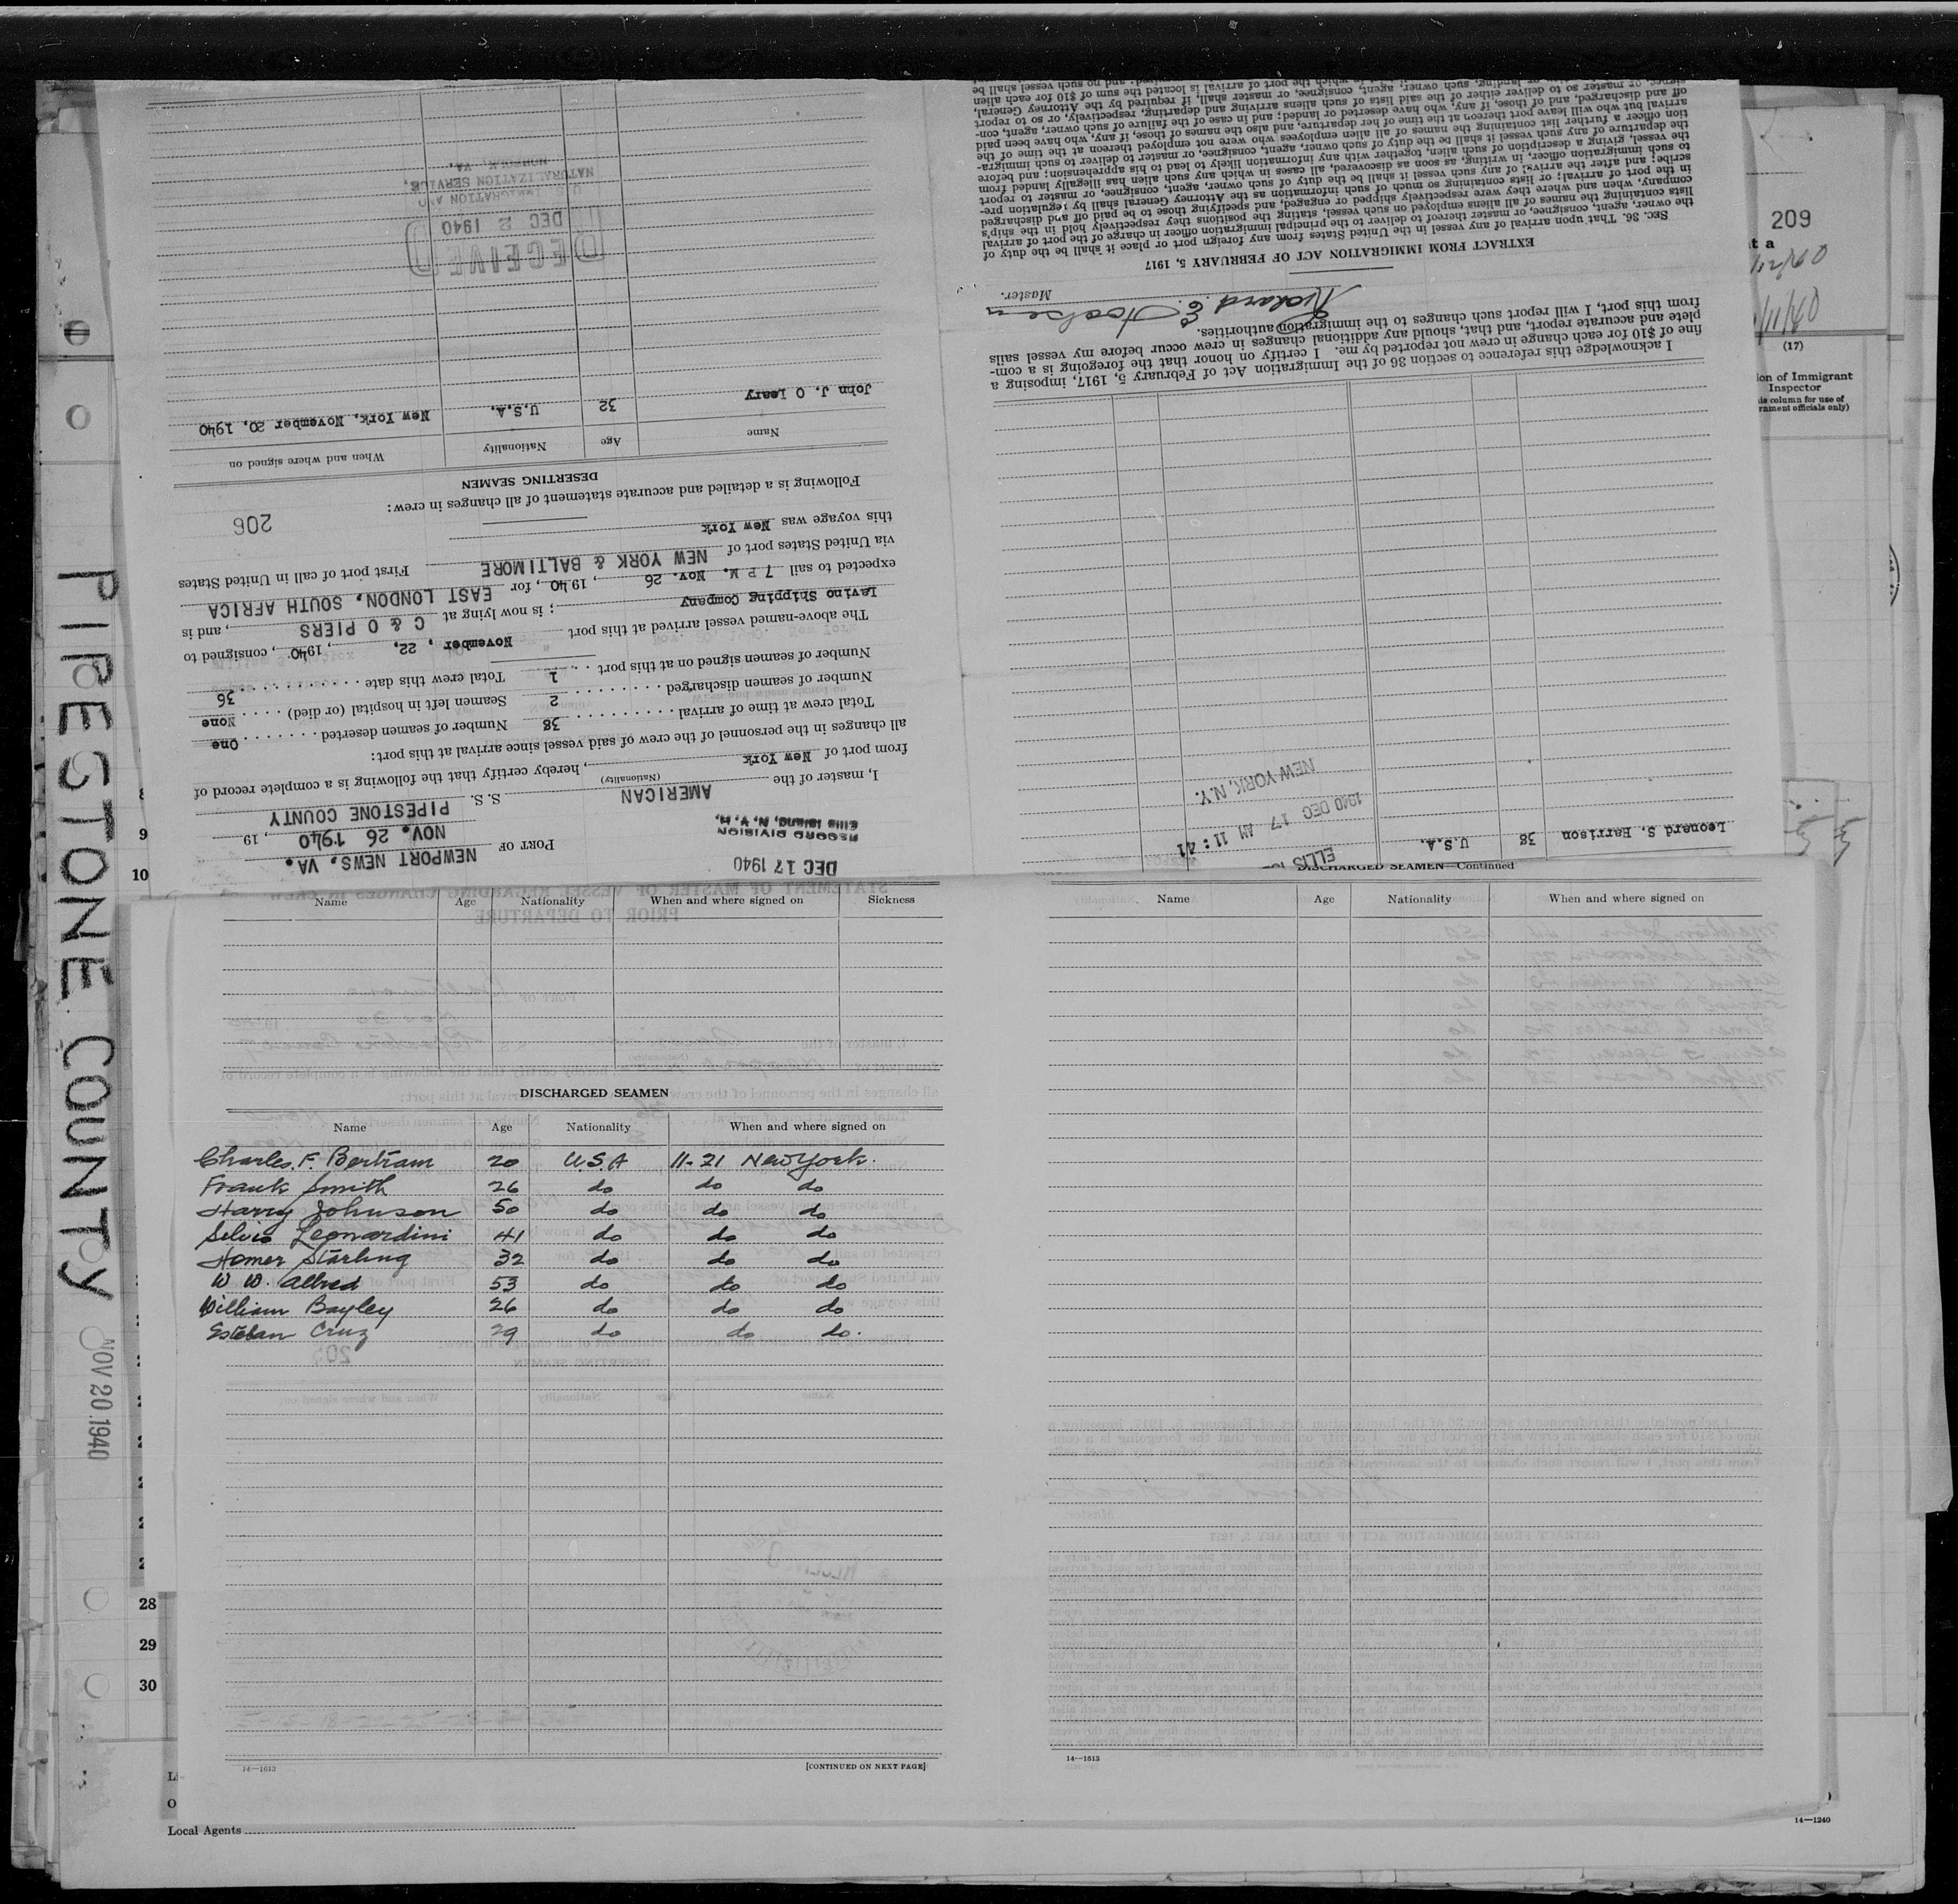 PIPESTONE COUNTY
NOV 20.1940
209
(17)
ion of Immigrant
Inspector
PORT OF NEWPORT NEWS, VA.
NOV. 26 1940, 19
DEC 17 1940
RECORD DIVISION
Ellis Island, N. Y. H.
I, master of the AMERICAN S. S. PIPESTONE COUNTY
(Nationality)
from port of New York, hereby certify that the following is a complete record of
all changes in the personnel of the crew of said vessel since arrival at this port:
Total crew at time of arrival 38 Number of seamen deserted One
Number of seamen discharged 2 Seamen left in hospital (or died) None
Number of seamen signed on at this port 1 Total crew this date 36
The above-named vessel arrived at this port November, 22, 1940, consigned to
Lavino Shipping Company; is now lying at C & O PIERS, and is
expected to sail 7 P M. Nov. 26, 1940, for EAST LONDON, SOUTH AFRICA
via United States port of NEW YORK & BALTIMORE First port of call in United States
this voyage was New York
206
Following is a detailed and accurate statement of all changes in crew:
DESERTING SEAMEN
Name Age Nationality When and where signed on
John J. O Leary 32 U.S.A. New York, November 20, 1940
RECEIVED
DEC 2 1940
U.S. IMMIGRATION AND
NATURALIZATION SERVICE,
NORFOLK, VA.
DISCHARGED SEAMEN—Continued
Leonard S. Harrison 38 U.S.A.
ELLIS IS
1940 DEC 17 AM 11:41
NEW YORK, N.Y.
I acknowledge this reference to section 36 of the Immigration Act of February 5, 1917, imposing a
fine of $10 for each change in crew not reported by me. I certify on honor that the foregoing is a com-
plete and accurate report, and that, should any additional changes in crew occur before my vessel sails
from this port, I will report such changes to the immigration authorities.
Richard E.
Master.
EXTRACT FROM IMMIGRATION ACT OF FEBRUARY 5, 1917
SEC. 36. That upon arrival of any vessel in the United States from any foreign port or place it shall be the duty of
the owner, agent, consignee, or master thereof to deliver to the principal immigration officer in charge of the port of arrival
lists containing the names of all aliens employed on such vessel, stating the positions they respectively hold in the ship's
company, when and where they were respectively shipped or engaged, and specifying those to be paid off and discharged
in the port of arrival; or lists containing so much of such information as the Attorney General shall by regulation pre-
scribe; and after the arrival of any such vessel it shall be the duty of such owner, agent, consignee, or master to report
to such immigration officer, in writing, as soon as discovered, all cases in which any such alien has illegally landed from
the vessel, giving a description of such alien, together with any information likely to lead to his apprehension; and before
the departure of any such vessel it shall be the duty of such owner, agent, consignee, or master to deliver to such immigra-
tion officer a further list containing the names of all alien employees who were not employed thereon at the time of the
arrival but who will leave port thereon at the time of her departure, and also the names of those, if any, who have been paid
off and discharged, and of those, if any, who have deserted or landed; and in case of the failure of such owner, agent, con-
signee, or master so to deliver either of the said lists of such aliens arriving and departing, respectively, or so to report
Name Age Nationality When and where signed on Sickness
DISCHARGED SEAMEN
Name Age Nationality When and where signed on
Charles. F. Bertram 20 USA 11-21 New York.
Frank Smith 26 do do do
Harry Johnson 50 do do do
Selvio Leonardini 41 do do do
Homer Starling 32 do do do
W W. Allred 53 do do do
William Bayley 26 do do do
Esteban Cruz 29 do do do.
14—1613 [CONTINUED ON NEXT PAGE]
Name Age Nationality When and where signed on
14—1613
9
10
28
29
30
Local Agents
14—1240